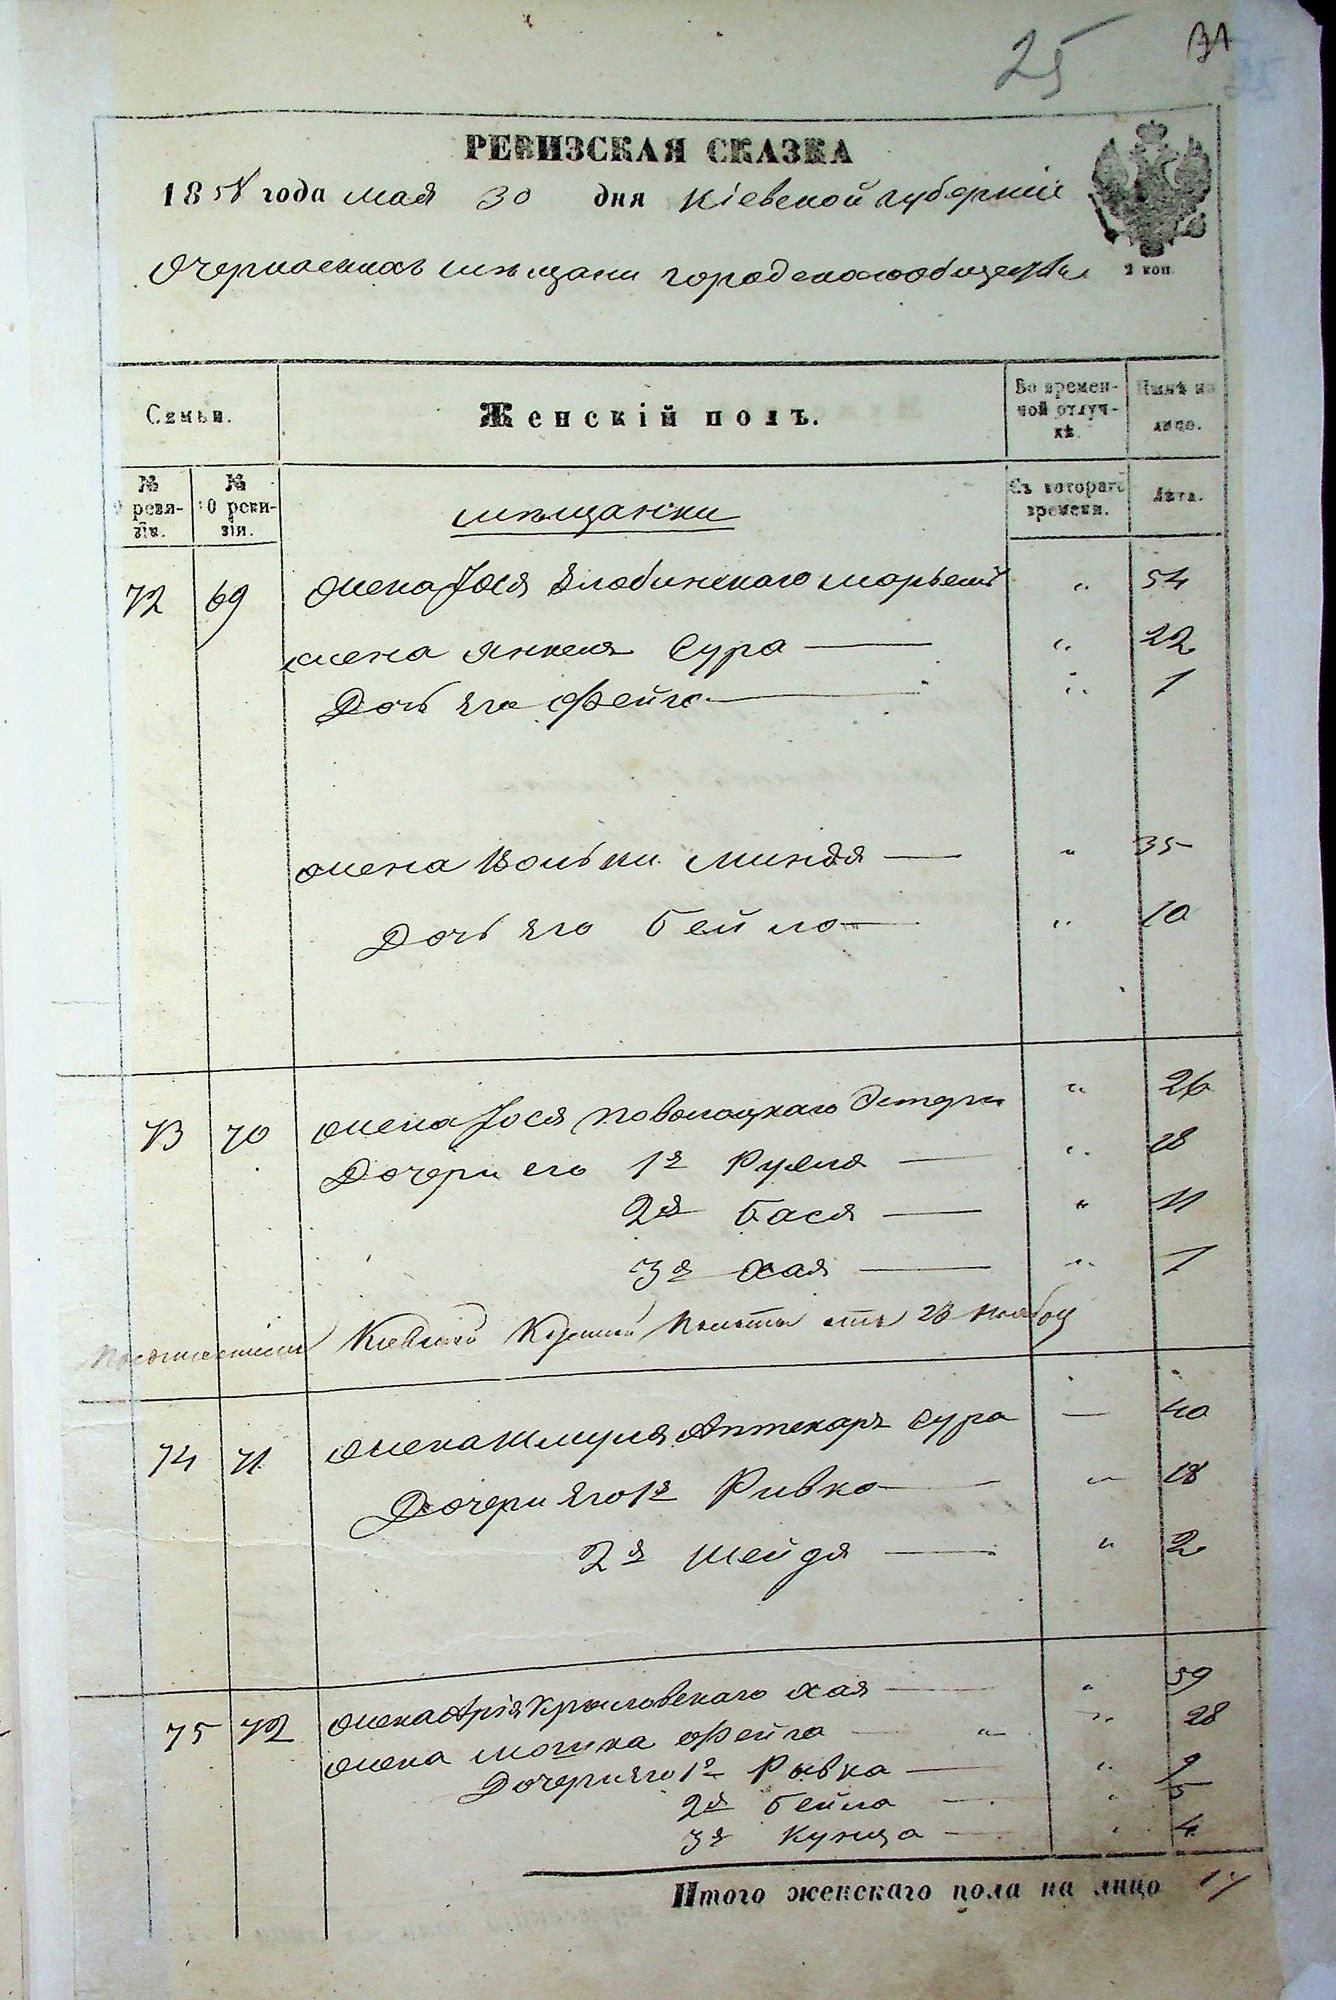 25
РЕВИЗСКАЯ СКАЗКА
1858 года мая 30 дня Кіевской губерніи
2 коп.
Семьи.
Женскій полъ.
Во времен-
ной отлуч-
кѣ.
Нынѣ на
лицо.
№
9 реви-
зіи.
№
10 реви-
зіи.
мѣщанки
Съ котораго
времени.
Лѣта.
72 69 жена Іося 54
жена Янкеля Сура " 22
Дочь его Фейга " 1
жена Вольки Миндя " 35
Дочь его Бейла " 10
73 70 жена Іося Поволоцкаго " 26
Дочери его 1я "
2я Бася " 11
3я Хая " 1
Кіевской Палаты отъ 23 Ноября
74 71 жена Шмуля Аптекаръ Сура — 40
Дочери его 1я Ривка " 18
2я Шейдя " 2
75 72 жена Арія Крыловскаго Хая " 59
жена Мошка Фейга " 28
Дочери его 1я Рывка " 9
2я Бейла " 5
3я " 4
Итого женскаго пола на лицо 17